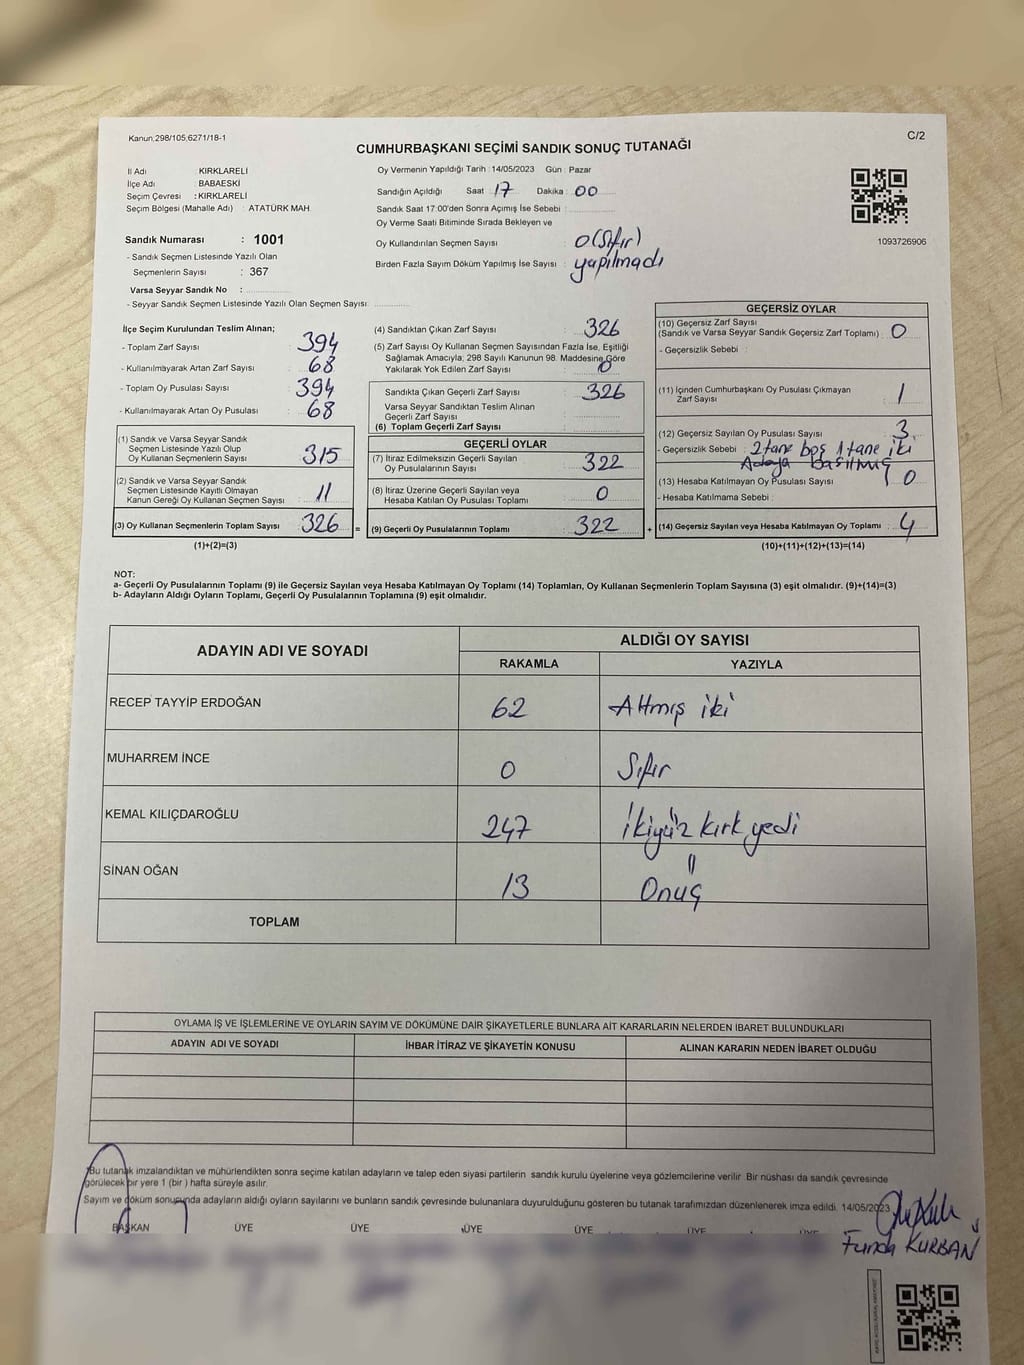 Kanun;298/105;6271/18-1
C/2
CUMHURBAŞKANI SEÇİMİ SANDIK SONUÇ TUTANAĞI
İl Adı KIRKLARELİ
İlçe Adı : BABAESKİ
Seçim Çevresi : KIRKLARELİ
Seçim Bölgesi (Mahalle Adı) : ATATÜRK MAH.
Oy Vermenin Yapıldığı Tarih : 14/05/2023 Gün : Pazar
Sandığın Açıldığı Saat : 17 Dakika : 00
Sandık Saat 17:00'den Sonra Açımış İse Sebebi :
Oy Verme Saati Bitiminde Sırada Bekleyen ve
Oy Kullandırılan Seçmen Sayısı : 0 (Sıfır)
Birden Fazla Sayım Döküm Yapılmış İse Sayısı : yapılmadı
1093726906
Sandık Numarası : 1001
- Sandık Seçmen Listesinde Yazılı Olan
Seçmenlerin Sayısı : 367
Varsa Seyyar Sandık No :
- Seyyar Sandık Seçmen Listesinde Yazılı Olan Seçmen Sayısı:
İlçe Seçim Kurulundan Teslim Alınan;
- Toplam Zarf Sayısı : 394
- Kullanılmayarak Artan Zarf Sayısı : 68
- Toplam Oy Pusulası Sayısı : 394
- Kullanılmayarak Artan Oy Pusulası : 68
(1) Sandık ve Varsa Seyyar Sandık
Seçmen Listesinde Yazılı Olup
Oy Kullanan Seçmenlerin Sayısı : 315
(2) Sandık ve Varsa Seyyar Sandık
Seçmen Listesinde Kayıtlı Olmayan
Kanun Gereği Oy Kullanan Seçmen Sayısı : 11
(3) Oy Kullanan Seçmenlerin Toplam Sayısı : 326 =
(1)+(2)=(3)
(4) Sandıktan Çıkan Zarf Sayısı : 326
(5) Zarf Sayısı Oy Kullanan Seçmen Sayısından Fazla İse, Eşitliği
Sağlamak Amacıyla; 298 Sayılı Kanunun 98. Maddesine Göre
Yakılarak Yok Edilen Zarf Sayısı : 0
Sandıkta Çıkan Geçerli Zarf Sayısı : 326
Varsa Seyyar Sandıktan Teslim Alınan
Geçerli Zarf Sayısı :
(6) Toplam Geçerli Zarf Sayısı :
GEÇERLİ OYLAR
(7) İtiraz Edilmeksizin Geçerli Sayılan
Oy Pusulalarının Sayısı : 322
(8) İtiraz Üzerine Geçerli Sayılan veya
Hesaba Katılan Oy Pusulası Toplamı : 0
(9) Geçerli Oy Pusulalarının Toplamı : 322 +
GEÇERSİZ OYLAR
(10) Geçersiz Zarf Sayısı
(Sandık ve Varsa Seyyar Sandık Geçersiz Zarf Toplamı) : 0
- Geçersizlik Sebebi :
(11) İçinden Cumhurbaşkanı Oy Pusulası Çıkmayan
Zarf Sayısı : 1
(12) Geçersiz Sayılan Oy Pusulası Sayısı : 3
- Geçersizlik Sebebi : 2 tane boş 1 tane iki
Adaya basılmış
(13) Hesaba Katılmayan Oy Pusulası Sayısı : 0
- Hesaba Katılmama Sebebi :
(14) Geçersiz Sayılan veya Hesaba Katılmayan Oy Toplamı : 4
(10)+(11)+(12)+(13)=(14)
NOT:
a- Geçerli Oy Pusulalarının Toplamı (9) ile Geçersiz Sayılan veya Hesaba Katılmayan Oy Toplamı (14) Toplamları, Oy Kullanan Seçmenlerin Toplam Sayısına (3) eşit olmalıdır. (9)+(14)=(3)
b- Adayların Aldığı Oyların Toplamı, Geçerli Oy Pusulalarının Toplamına (9) eşit olmalıdır.
ADAYIN ADI VE SOYADI ALDIĞI OY SAYISI
RAKAMLA YAZIYLA
RECEP TAYYİP ERDOĞAN 62 Altmış iki
MUHARREM İNCE 0 Sıfır
KEMAL KILIÇDAROĞLU 247 İkiyüz kırk yedi
SİNAN OĞAN 13 Onüç
TOPLAM
OYLAMA İŞ VE İŞLEMLERİNE VE OYLARIN SAYIM VE DÖKÜMÜNE DAİR ŞİKAYETLERLE BUNLARA AİT KARARLARIN NELERDEN İBARET BULUNDUKLARI
ADAYIN ADI VE SOYADI İHBAR İTİRAZ VE ŞİKAYETİN KONUSU ALINAN KARARIN NEDEN İBARET OLDUĞU
*Bu tutanak imzalandıktan ve mühürlendikten sonra seçime katılan adayların ve talep eden siyasi partilerin sandık kurulu üyelerine veya gözlemcilerine verilir. Bir nüshası da sandık çevresinde
görülecek bir yere 1 (bir ) hafta süreyle asılır.
Sayım ve döküm sonucunda adayların aldığı oyların sayılarını ve bunların sandık çevresinde bulunanlara duyurulduğunu gösteren bu tutanak tarafımızdan düzenlenerek imza edildi. 14/05/2023
BAŞKAN ÜYE ÜYE ÜYE ÜYE ÜYE ÜYE
Funda KURBAN